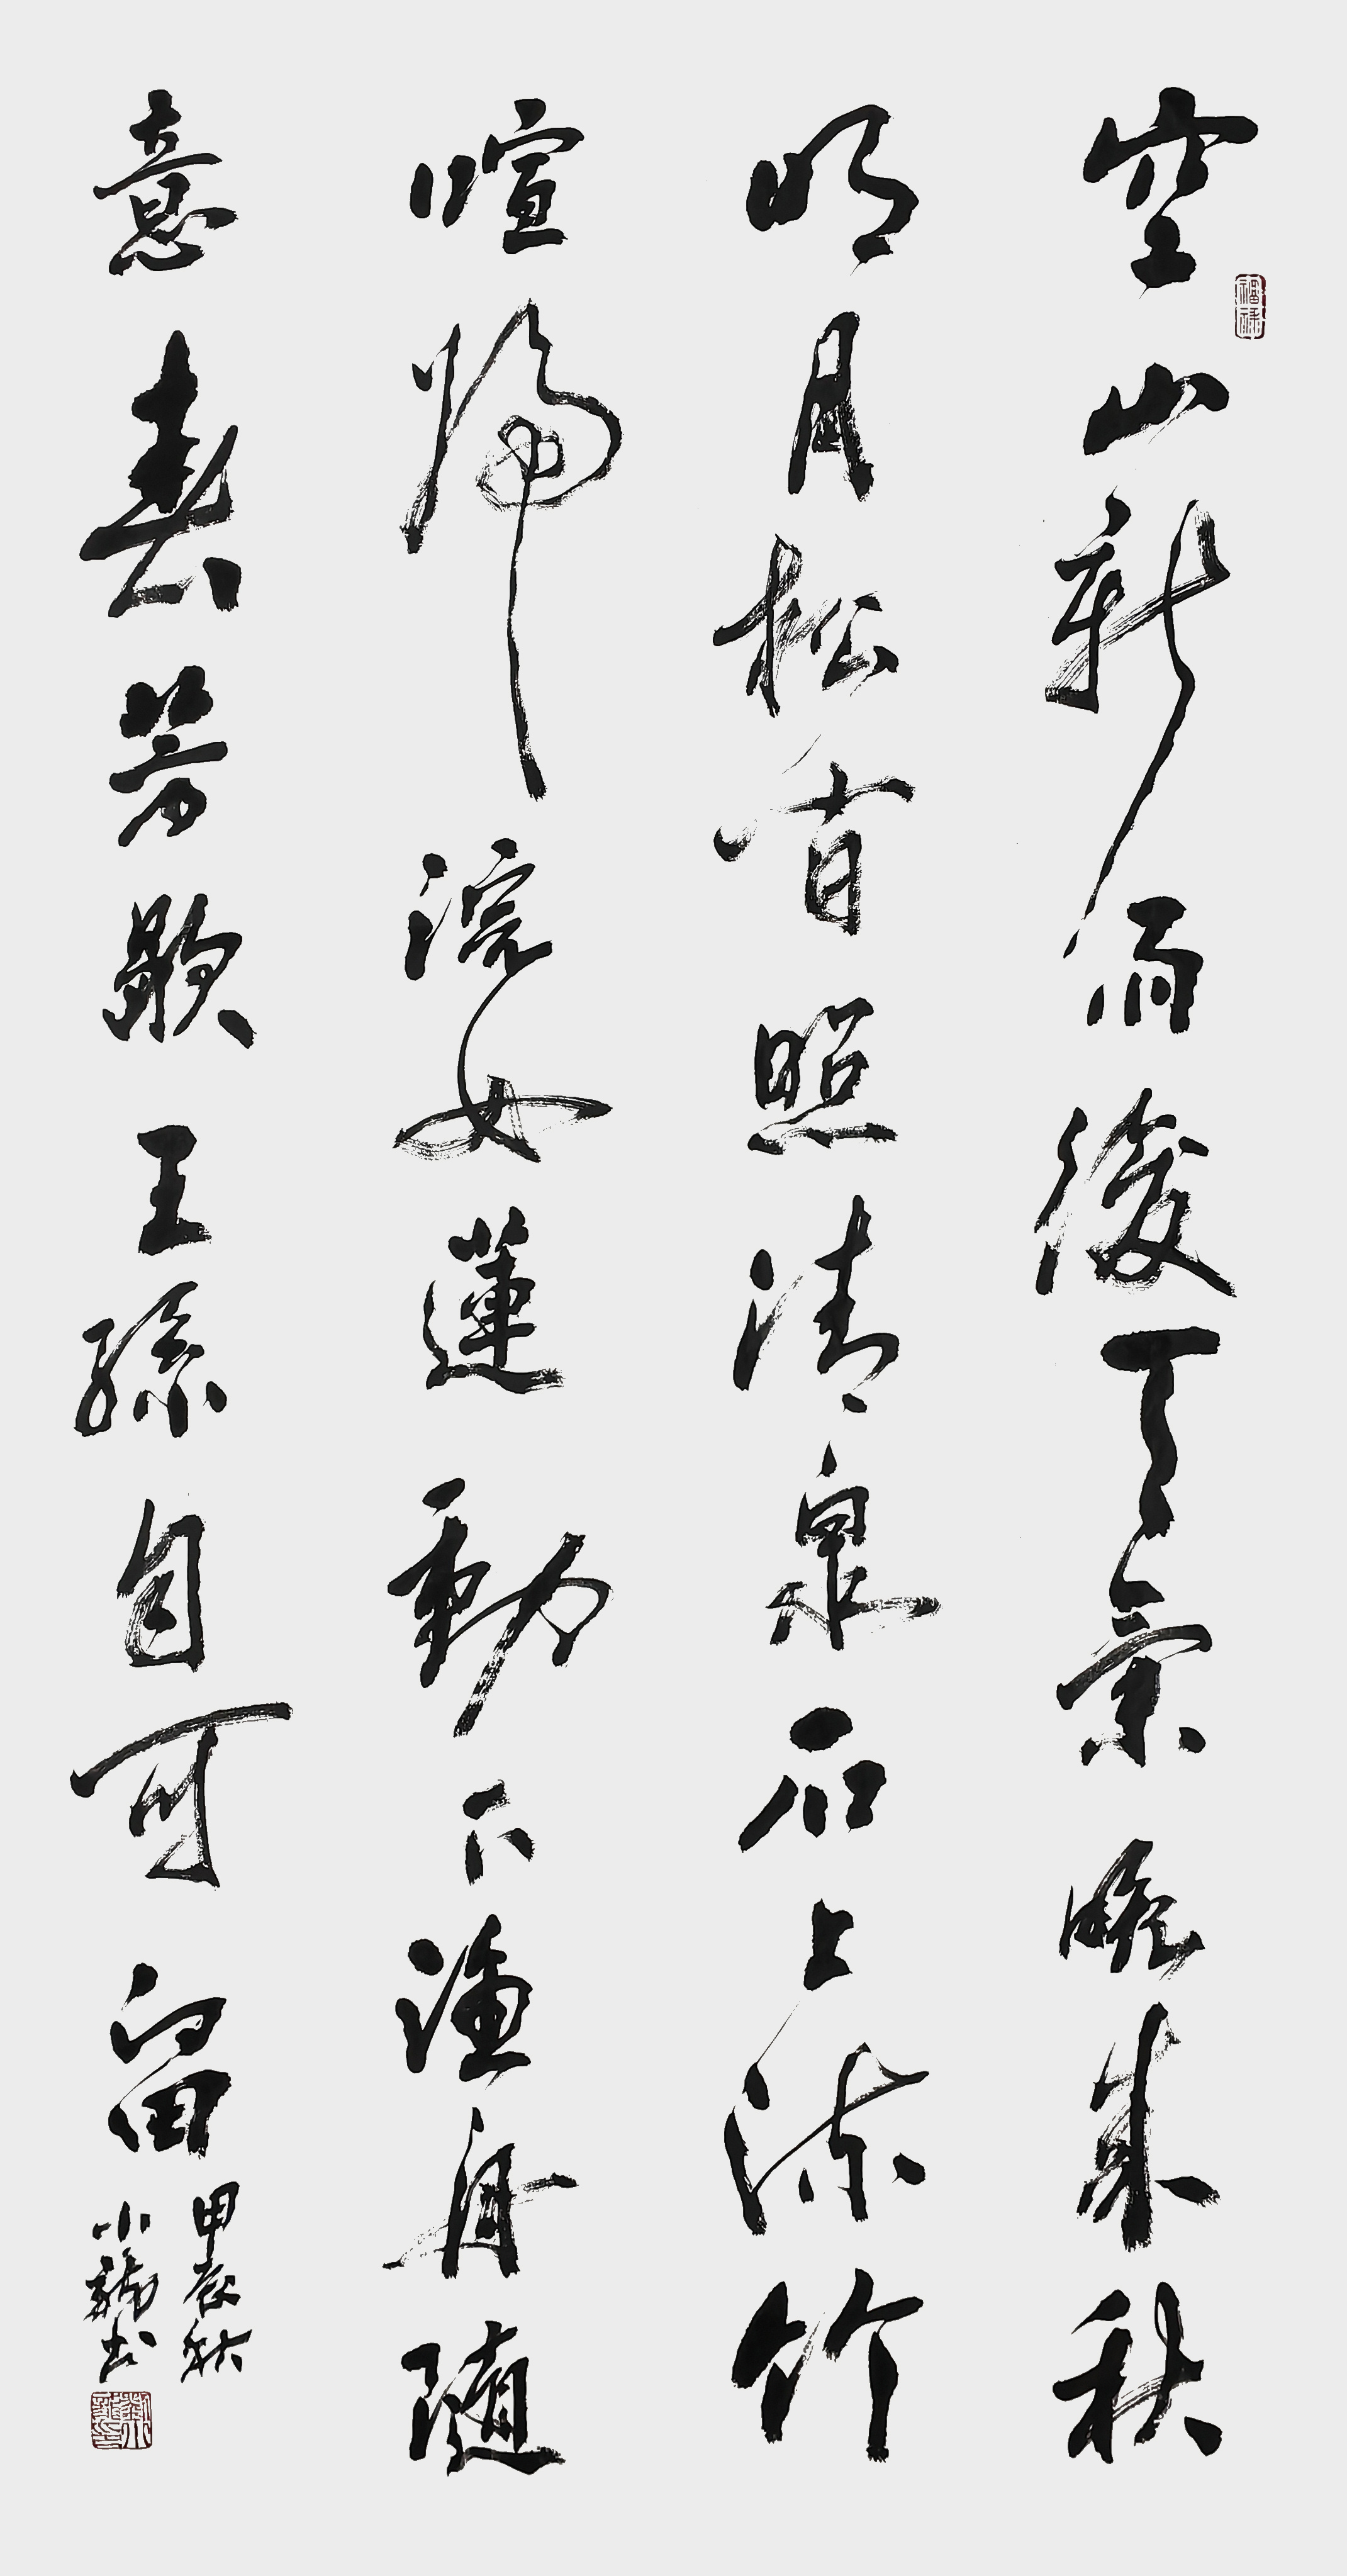 福祿
空山新雨後天氣晚來秋
明月松間照清泉石上流竹
喧歸浣女蓮動下漁舟隨
意春芳歇王孫自可留
甲辰秋
小龍書